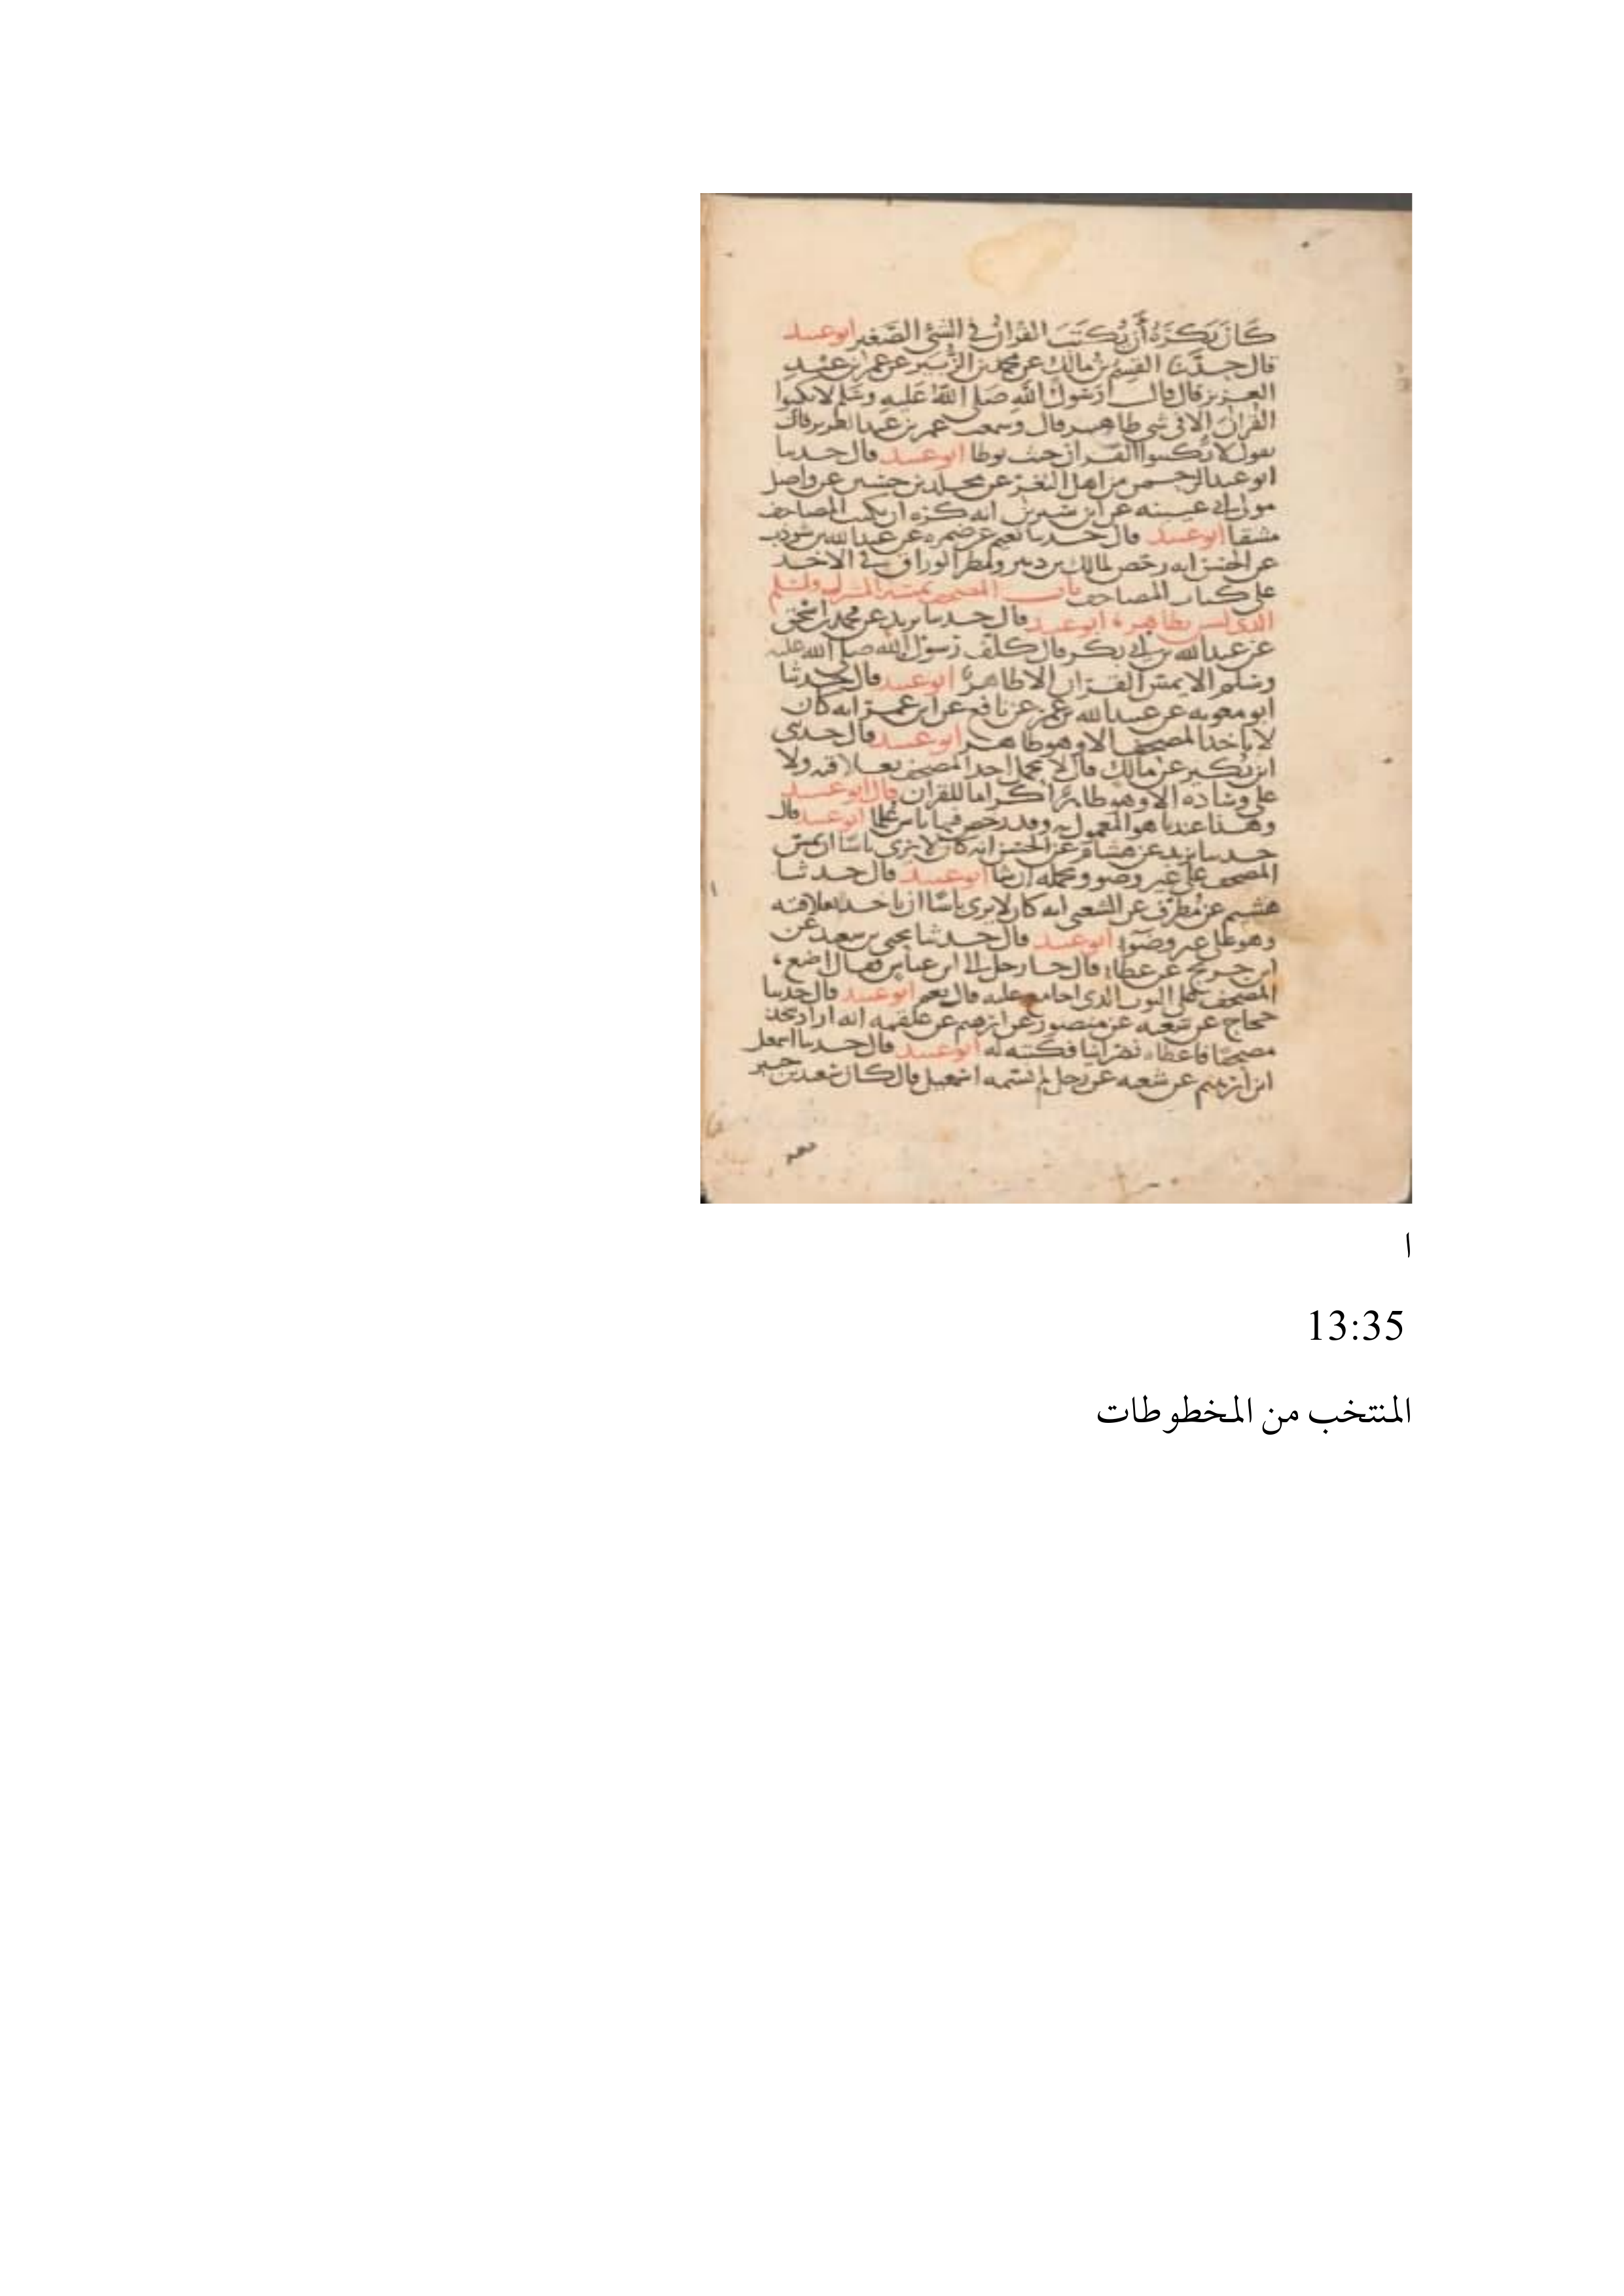 كَانَ يَكرَهُ أَن يُكتَبَ القُرانُ في الشئ الصَّغير ابو عبيد
قال حدَّثنا القسم بن مالك عن محمد بن الزُّبير عن عمر بن عَبْدِ
العزيز قال قال رَسُولُ اللَّهِ صَلى اللَّهُ عَلَيهِ وسَلم لا تكتبوا
القُرانَ إلا في شي طاهر قال وسمعت عمر بن عبد العزيز قال
يقول لا تكتبوا القران حيث يوطا ابو عبيد قال حدثنا
ابو عبد الرحمن من اهل الثغر عن مخلد بن حسين عن واصل
مولى ابي عيينه عن ابن سيرين انه كره ان يكتب المصاحف
مشقا ابو عبيد قال حدثنا نعيم عن ضمره عن عبد الله بن شوذب
عن الحسن انه رخص لمالك بن دينر ولمطر الوراق في الاخذ
على كتاب المصاحف باب المصحف يمسه المشرك والمسلم
الذي ليس بطاهر ابو عبيد قال حدثنا يزيد عن محمد بن اسحق
عن عبد الله بن ابي بكر قال كلف رسول الله صلى الله عليه
وسلم الا يمس القران الا طاهر ابو عبيد قال حدثنا
ابو معويه عن عبيد الله بن عمر عن نافع عن ابن عمر انه كان
لا ياخذ المصحف الا وهو طاهر ابو عبيد قال حدثني
ابن بُكير عن مالك قال لا يحمل احد المصحف بعلاقته ولا
على وسادة الا وهو طاهر اكراما للقران قال ابو عبيد
وهذا عندنا هو المعمول به وقد رخص فيه ناس علما ابو عبيد قال
حدثنا يزيد عن هشام عن الحسن انه كان لا يرى باسا ان يمس
المصحف على غير وضو ويحمله ان شا ابو عبيد قال حدثنا
هشيم عن مُطرف عن الشعبي انه كان لا يرى باسًا ان ياخذ بعلاقته
وهو على غير وضوء ابو عبيد قال حدثنا يحيى بن سعيد عن
ابن جريج عن عطا قال جا رجل الى ابن عباس فقال اضع
المصحف على الثوب الذي اجامع عليه قال نعم ابو عبيد قال حدثنا
حجاج عن شعبه عن منصور عن ابرهيم عن علقمه انه اراد يتخذ
مصحفا فاعطاه نصرانيا فكتبه له ابو عبيد قال حدثنا اسمعيل
ابن ابرهيم عن شعبه عن رجل لم يسمه اسمعيل قال كان سعيد بن جبير
معه
ا
13:35
المنتخب من المخطوطات